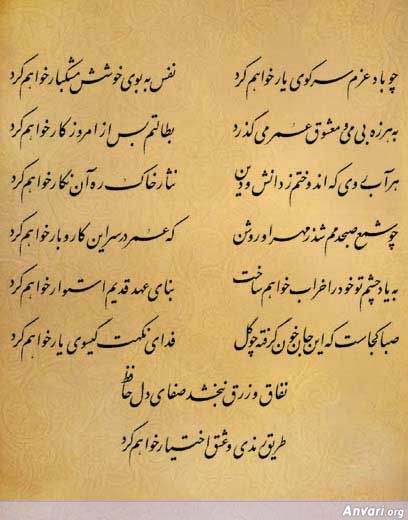 چو باد عزم سر کوی یار خواهم کرد نفس به بوی خوشش مشکبار خواهم کرد
به هرزه بی می و معشوق عمر می گذرد بطالتم بس از امروز کار خواهم کرد
هر آبروی که اندوختم ز دانش و دین نثار خاک ره آن نگار خواهم کرد
چو شمع صبحدمم شد ز مهر او روشن که عمر در سر این کار و بار خواهم کرد
به یاد چشم تو خود را خراب خواهم ساخت بنای عهد قدیم استوار خواهم کرد
صبا کجاست که این جان خون گرفته چو گل فدای نکهت گیسوی یار خواهم کرد
نفاق و زرق نبخشد صفای دل حافظ
طریق رندی و عشق اختیار خواهم کرد
Anvari.org